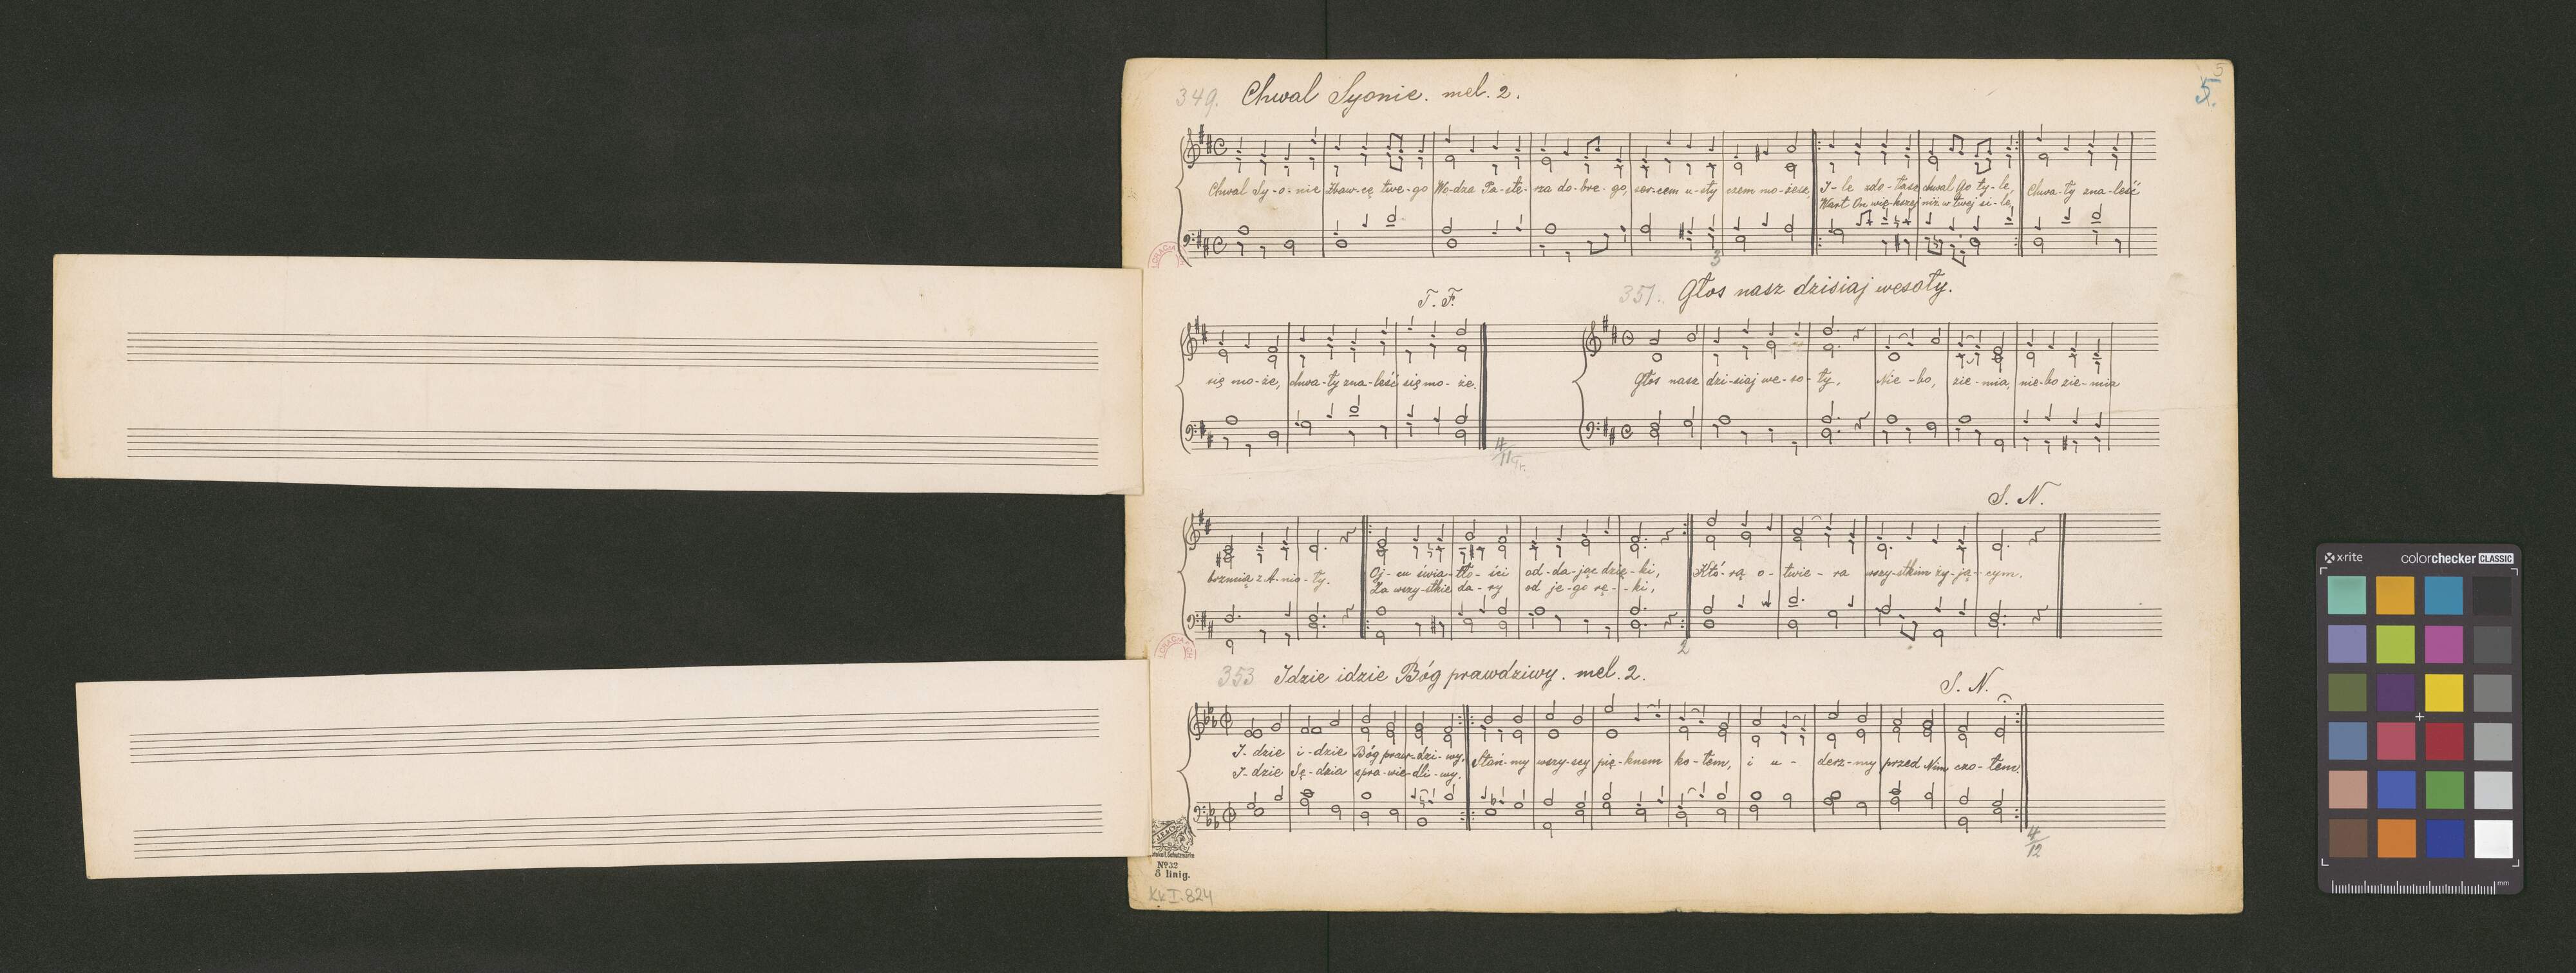 5
5.
349. Chwal Syonie. mel. 2.
Chwal Sy-o-nie Zbaw-cę twe-go Wo-dza Pa-ste-rza do-bre-go, ser-cem u-sty czem mo-żesz, I-le zdo-łasz chwal Go ty-le, Chwa-ły zna-leść
Wart On wię-kszej niż w twej si-le,
3
T. F.
351. Głos nasz dzisiaj wesoły.
się mo-że, chwa-ły zna-leść się mo-że.
Głos nasz dzi-siaj we-so-ły, Nie-bo, zie-mia, nie-bo zie-mia
4/11
S. N.
brzmią z A-nio-ły. Oj-cu świa-tło-ści od-da-jąc dzię-ki, Któ-rą o-twie-ra wszy-stkim ży-ją-cym.
Za wszy-stkie da-ry od je-go rę-ki,
2
353 Idzie idzie Bóg prawdziwy. mel. 2.
S. N.
I-dzie i-dzie Bóg praw-dzi-wy, Stań-my wszy-scy pię-knem ko-łem, i u-derz-my przed Nim czo-łem.
I-dzie Sę-dzia spra-wie-dli-wy.
4/12
No 32
8 linig.
KK I. 824
x-rite colorchecker CLASSIC
mm